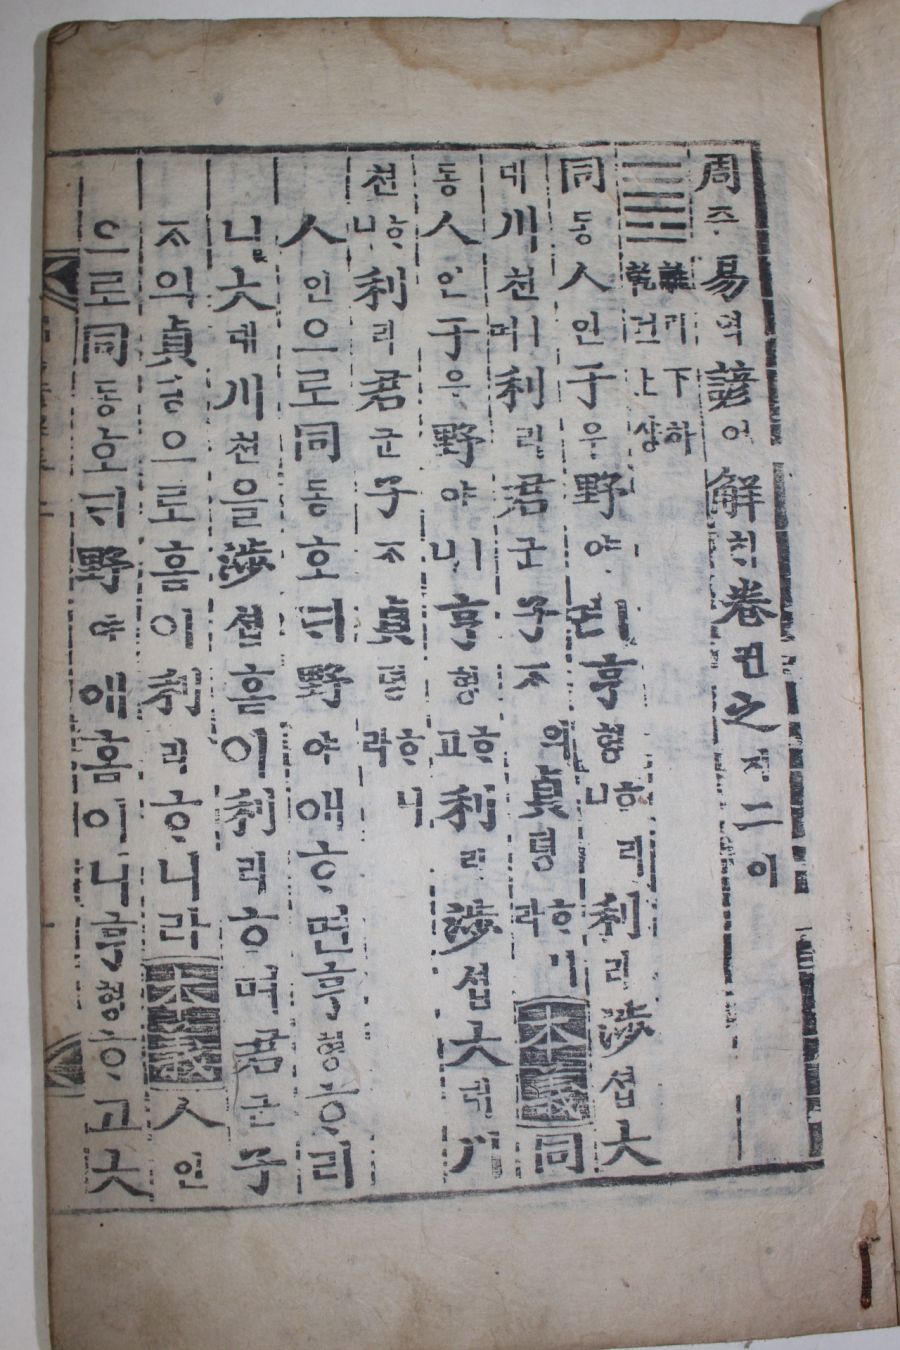 周쥬易역諺어解ᄒᆡ卷권之지二이
䷌ 離리下하 乾건上샹
同동人인于우野야ㅣ면亨형ᄒᆞ리니利리涉셥大
대川쳔이며利리君군子ᄌᆞ의貞뎡ᄒᆞ니라 本義 同
동人인于우野야ㅣ니亨형ᄒᆞ고利리涉셥大대川
쳔ᄒᆞ니利리君군子ᄌᆞ貞뎡ᄒᆞ니라
人인으로同동호ᄃᆡ野야애ᄒᆞ면亨형ᄒᆞ리
니大대川쳔을涉셥홈이利리ᄒᆞ며君군子
ᄌᆞ의貞뎡으로홈이利리ᄒᆞ니라 本義 人인
으로同동호ᄃᆡ野야애홈이니亨형ᄒᆞ고大